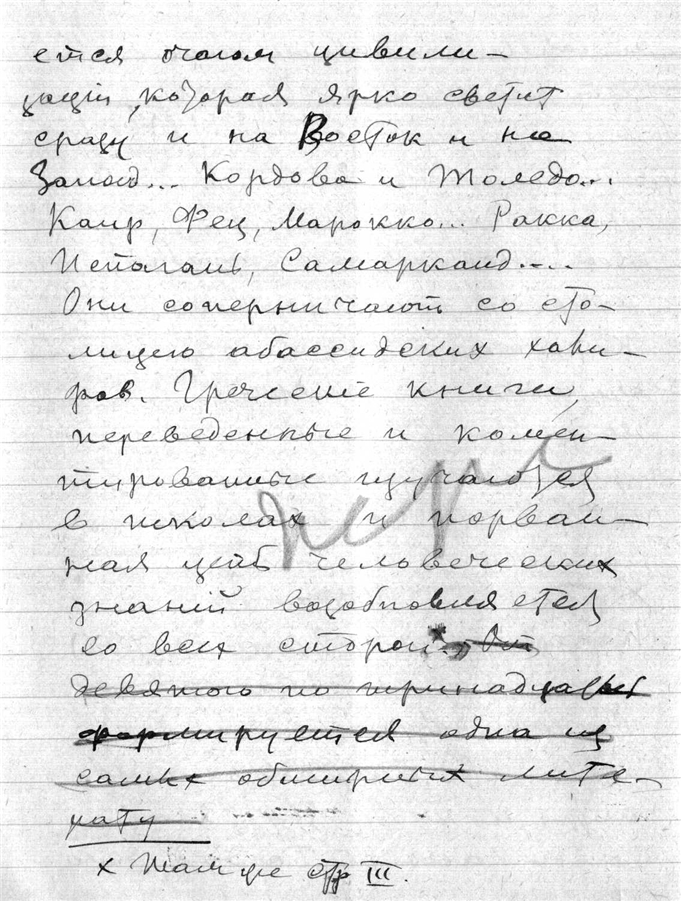 ется очагом цивили-
зацiи, которая ярко светит
сразу и на Восток и на
Запад... Кордова и Толедо...
Каир, Фец, Марокко... Ракка,
Испагань, Самарканд....
Они соперничают со сто-
лицею абассидских хали-
фов. Греческiе книги,
переведенные и комен-
тированные изучаются
в школах и порван-
ная цепь человеческих
знанiй возобновляется
со всех сторон. x От
девятого по тринадцатый
формируется одна из
самых обширных лите-
рату
x Там же стр III.